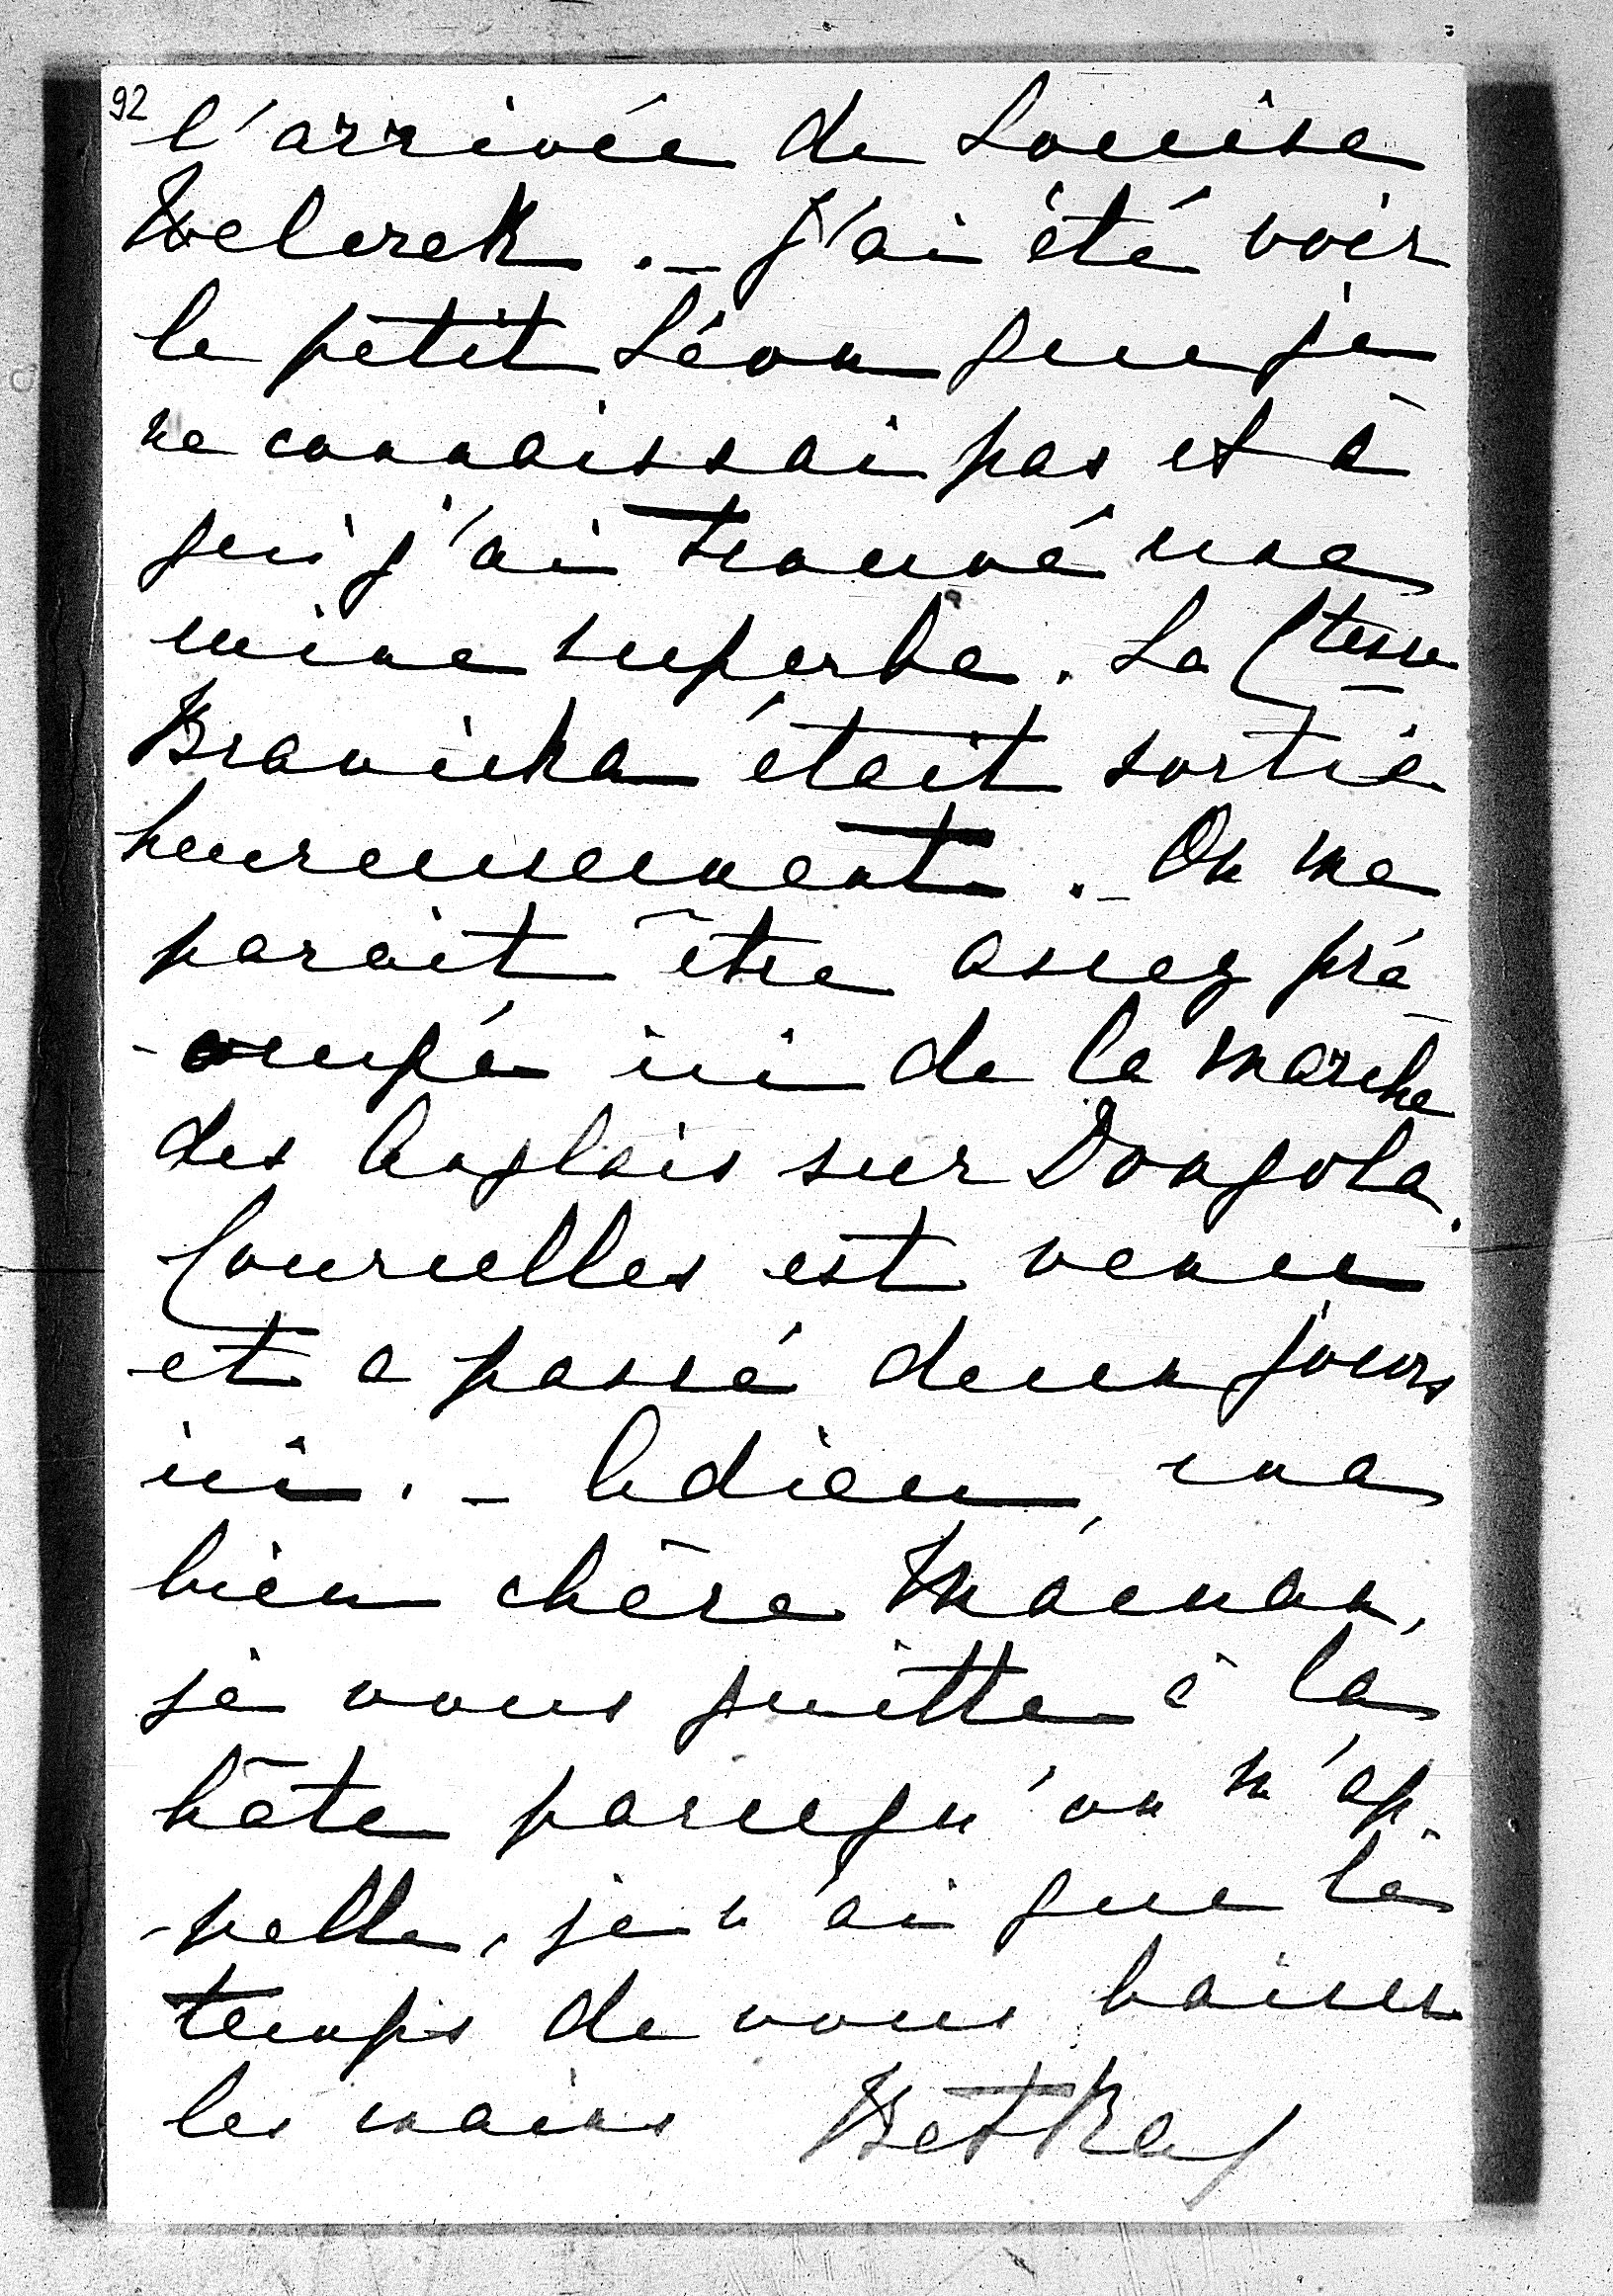 92
l'arrivée de Louise
Welcrek. — J'ai été voir
le petit Léon que je
ne connaissai pas et à
qui j'ai trouvé une
mine superbe. La Ctesse
Branicka était sortie
heureusement. — On me
parait être assez pré
-occupé ici de la marche
des Anglais sur Dongola.
Courcelles est venu
et a passé deux jours
ici. — Adieu, ma
bien chère Maman,
je vous quitte à la
hâte parcequ'on m'ap-
-pelle, je n'ai que le
temps de vous baiser
les mains Betka